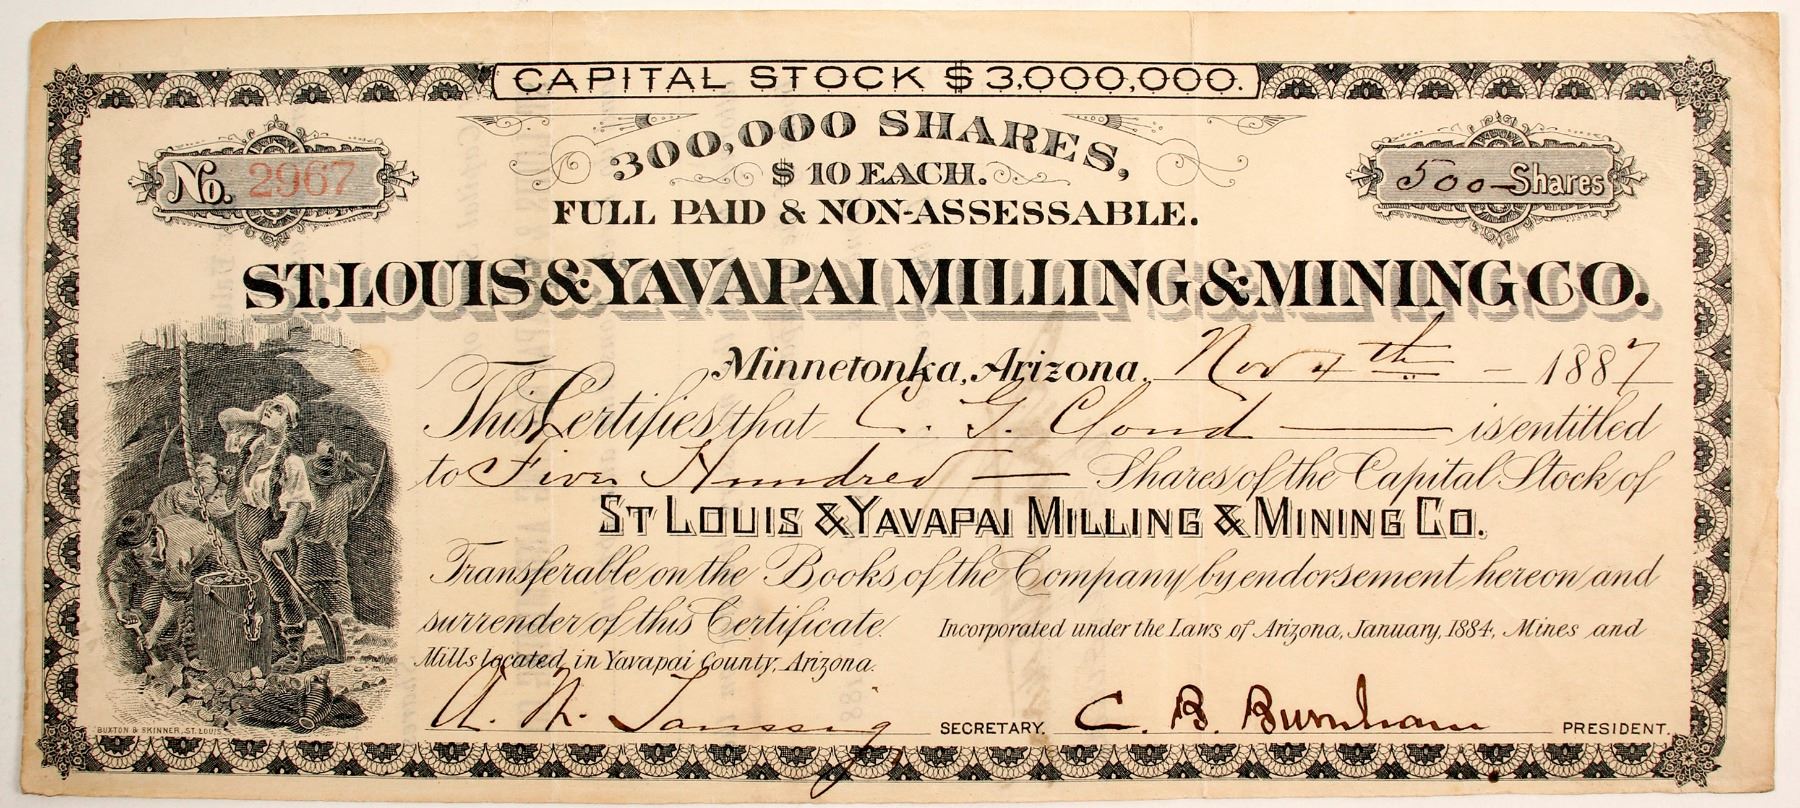 CAPITAL STOCK $3,000,000.
300,000 SHARES,
$10 EACH.
FULL PAID & NON-ASSESSABLE.
No. 2967
500 Shares
ST. LOUIS & YAVAPAI MILLING & MINING CO.
Minnetonka, Arizona, Nov 4th 1887
This Certifies that C. G. Cloud is entitled
to Five Hundred Shares of the Capital Stock of
ST LOUIS & YAVAPAI MILLING & MINING CO.
Transferable on the Books of the Company by endorsement hereon and
surrender of this Certificate. Incorporated under the Laws of Arizona, January, 1884, Mines and
Mills located in Yavapai County, Arizona.
SECRETARY. C. B. Burnham PRESIDENT.
BUXTON & SKINNER, ST. LOUIS